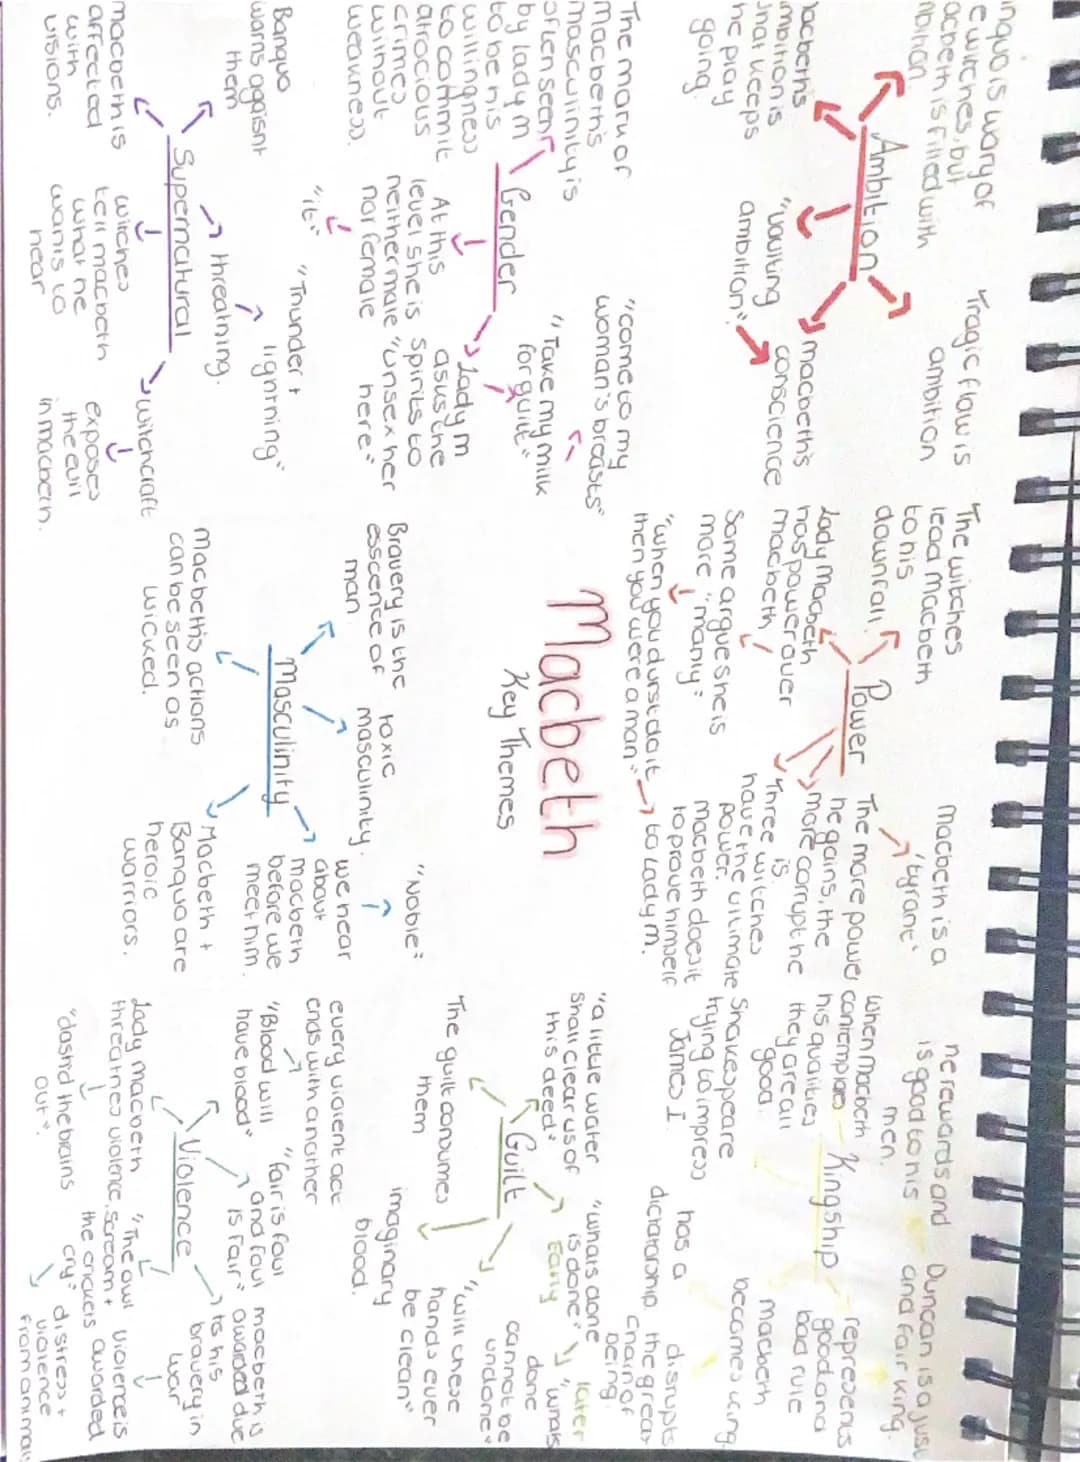 Macbeth
Key Themes
Ambition
Banquo is wary of
the witches, but
Macbeth is filled with
ambition.
Tragic flaw is
ambition
Macbeth's
ambition is
what keeps
the play
going.
"vaulting
ambition".
macbeth's
conscience
Power
The witches
lead Macbeth
to his
downfall.
Macbeth is a
'tyrant'
Lady Macbeth
has power over
macbeth
Some argue she is
more "manly"
"when you durst do it
then you were a man"
to Lady M.
The more power
he gains, the
more corrupt he
is.
Three witches
have the ultimate
power.
macbeth does it
to prove himself
Kingship
he rewards and
is good to his
men.
Duncan is a just
and fair king.
When macbeth
contemplates
his qualities
they are all
good.
represents
good and
bad rule
Shakespeare
trying to impress
James I.
macbeth
becomes king
has a
dictatorship
disrupts
the great
chain of
being.
Gender
The mark of
Macbeth's
masculinity is
often seen
by lady m
to be his
willingness
to commit
atrocious
crimes
without
weakness.
"come to my
woman's breasts"
"Take my milk
for guilt"
At this
level she is
neither male
nor female
"it"
Lady m
asks the
spirits to
"unsex her
here"
Guilt
"a little water
shall clear us of
this deed"
"whats done
is done"
Early
later
"whats
done
cannot be
undone"
The guilt consumes
them
imaginary
blood.
"will these
hands ever
be clean"
Supernatural
Banquo
warns aggaisnt
them
threatning.
"Thunder +
lightning"
macbeth is
affected
with
visions.
witches
tell macbeth
what he
wants to
hear
witchcraft
exposes
the evil
in macbeth.
Masculinity
Bravery is the
esscence of
man.
toxic
masculinity.
"Noble"
we hear
about
macbeth
before we
meet him.
Macbeth's actions
can be seen as
wicked.
Macbeth +
Banquo are
heroic
warriors.
Violence
every violent act
ends with another
"Blood will
have blood"
"fair is foul
and foul
is fair"
macbeth is
awarded due
to his
bravery in
war
Lady macbeth
threatnes violence.
"dashd the brains
out".
"The owl
scream +
the crickets
cry"
violence is
awarded
distress +
violence
from animals